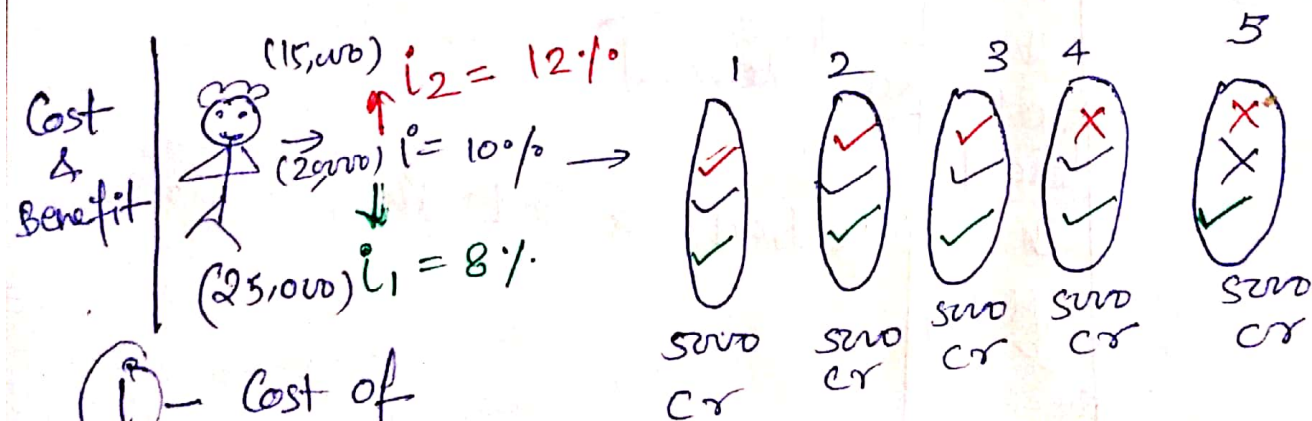 Cost
&
Benefit
(15,000) i2 = 12%
(20,000) i = 10% →
(25,000) i1 = 8%
1 2 3 4 5
5000
cr
5000
cr
5000
cr
5000
cr
5000
cr
i - Cost of